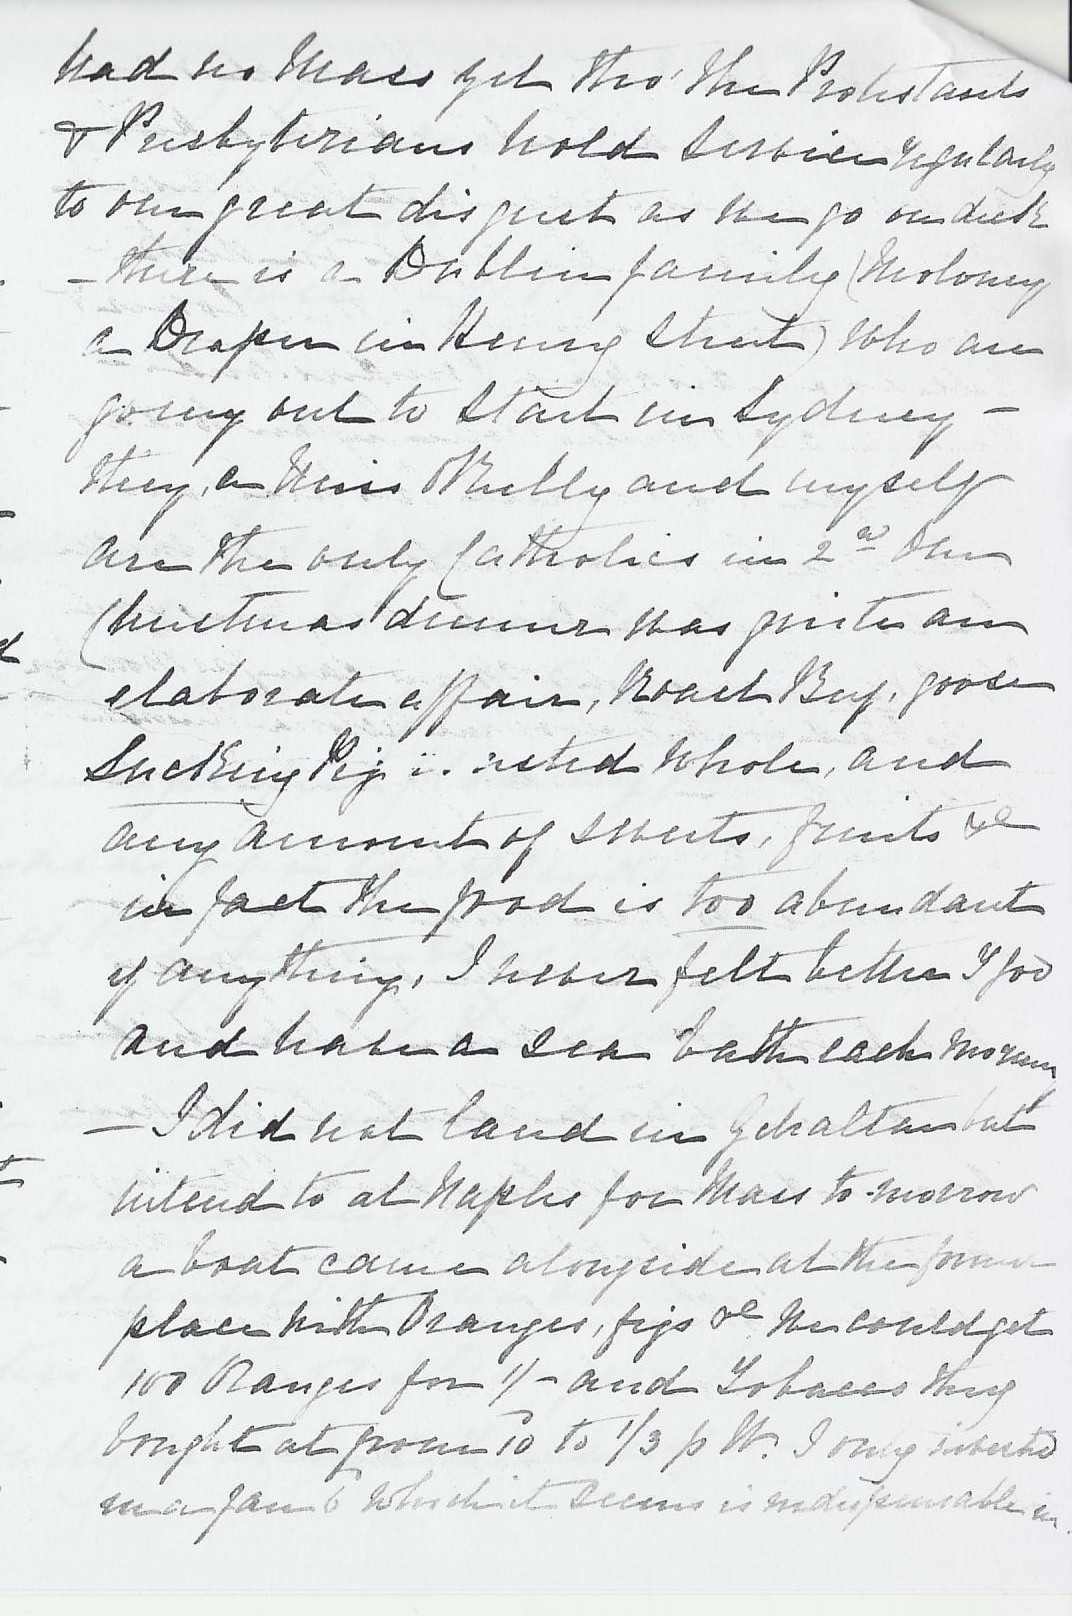 had no Mass yet tho' the Protestants
& Presbyterians hold Service regularly
to our great disgust as we go on deck
- there is a Dublin family (Moloney
a Draper in Henry Street) who are
going out to start in Sydney -
they, a Miss O'Reilly and myself
are the only Catholics in 2nd Our
Christmas dinner was quite an
elaborate affair, Roast Beef, goose
Sucking Pig roasted whole, and
any amount of sweets, fruits &c
in fact the food is too abundant
if anything, I never felt better I
and have a sea bath each morning
- I did not land in Gibraltar but
intend to at Naples for Mass to-morrow
a boat came alongside at the former
place with Oranges, figs &c we could get
100 Oranges for 1/- and Tobacco they
bought at from 10 to 1/3 p lb. I only invested
in a fan 6 which it seems is indispensable in